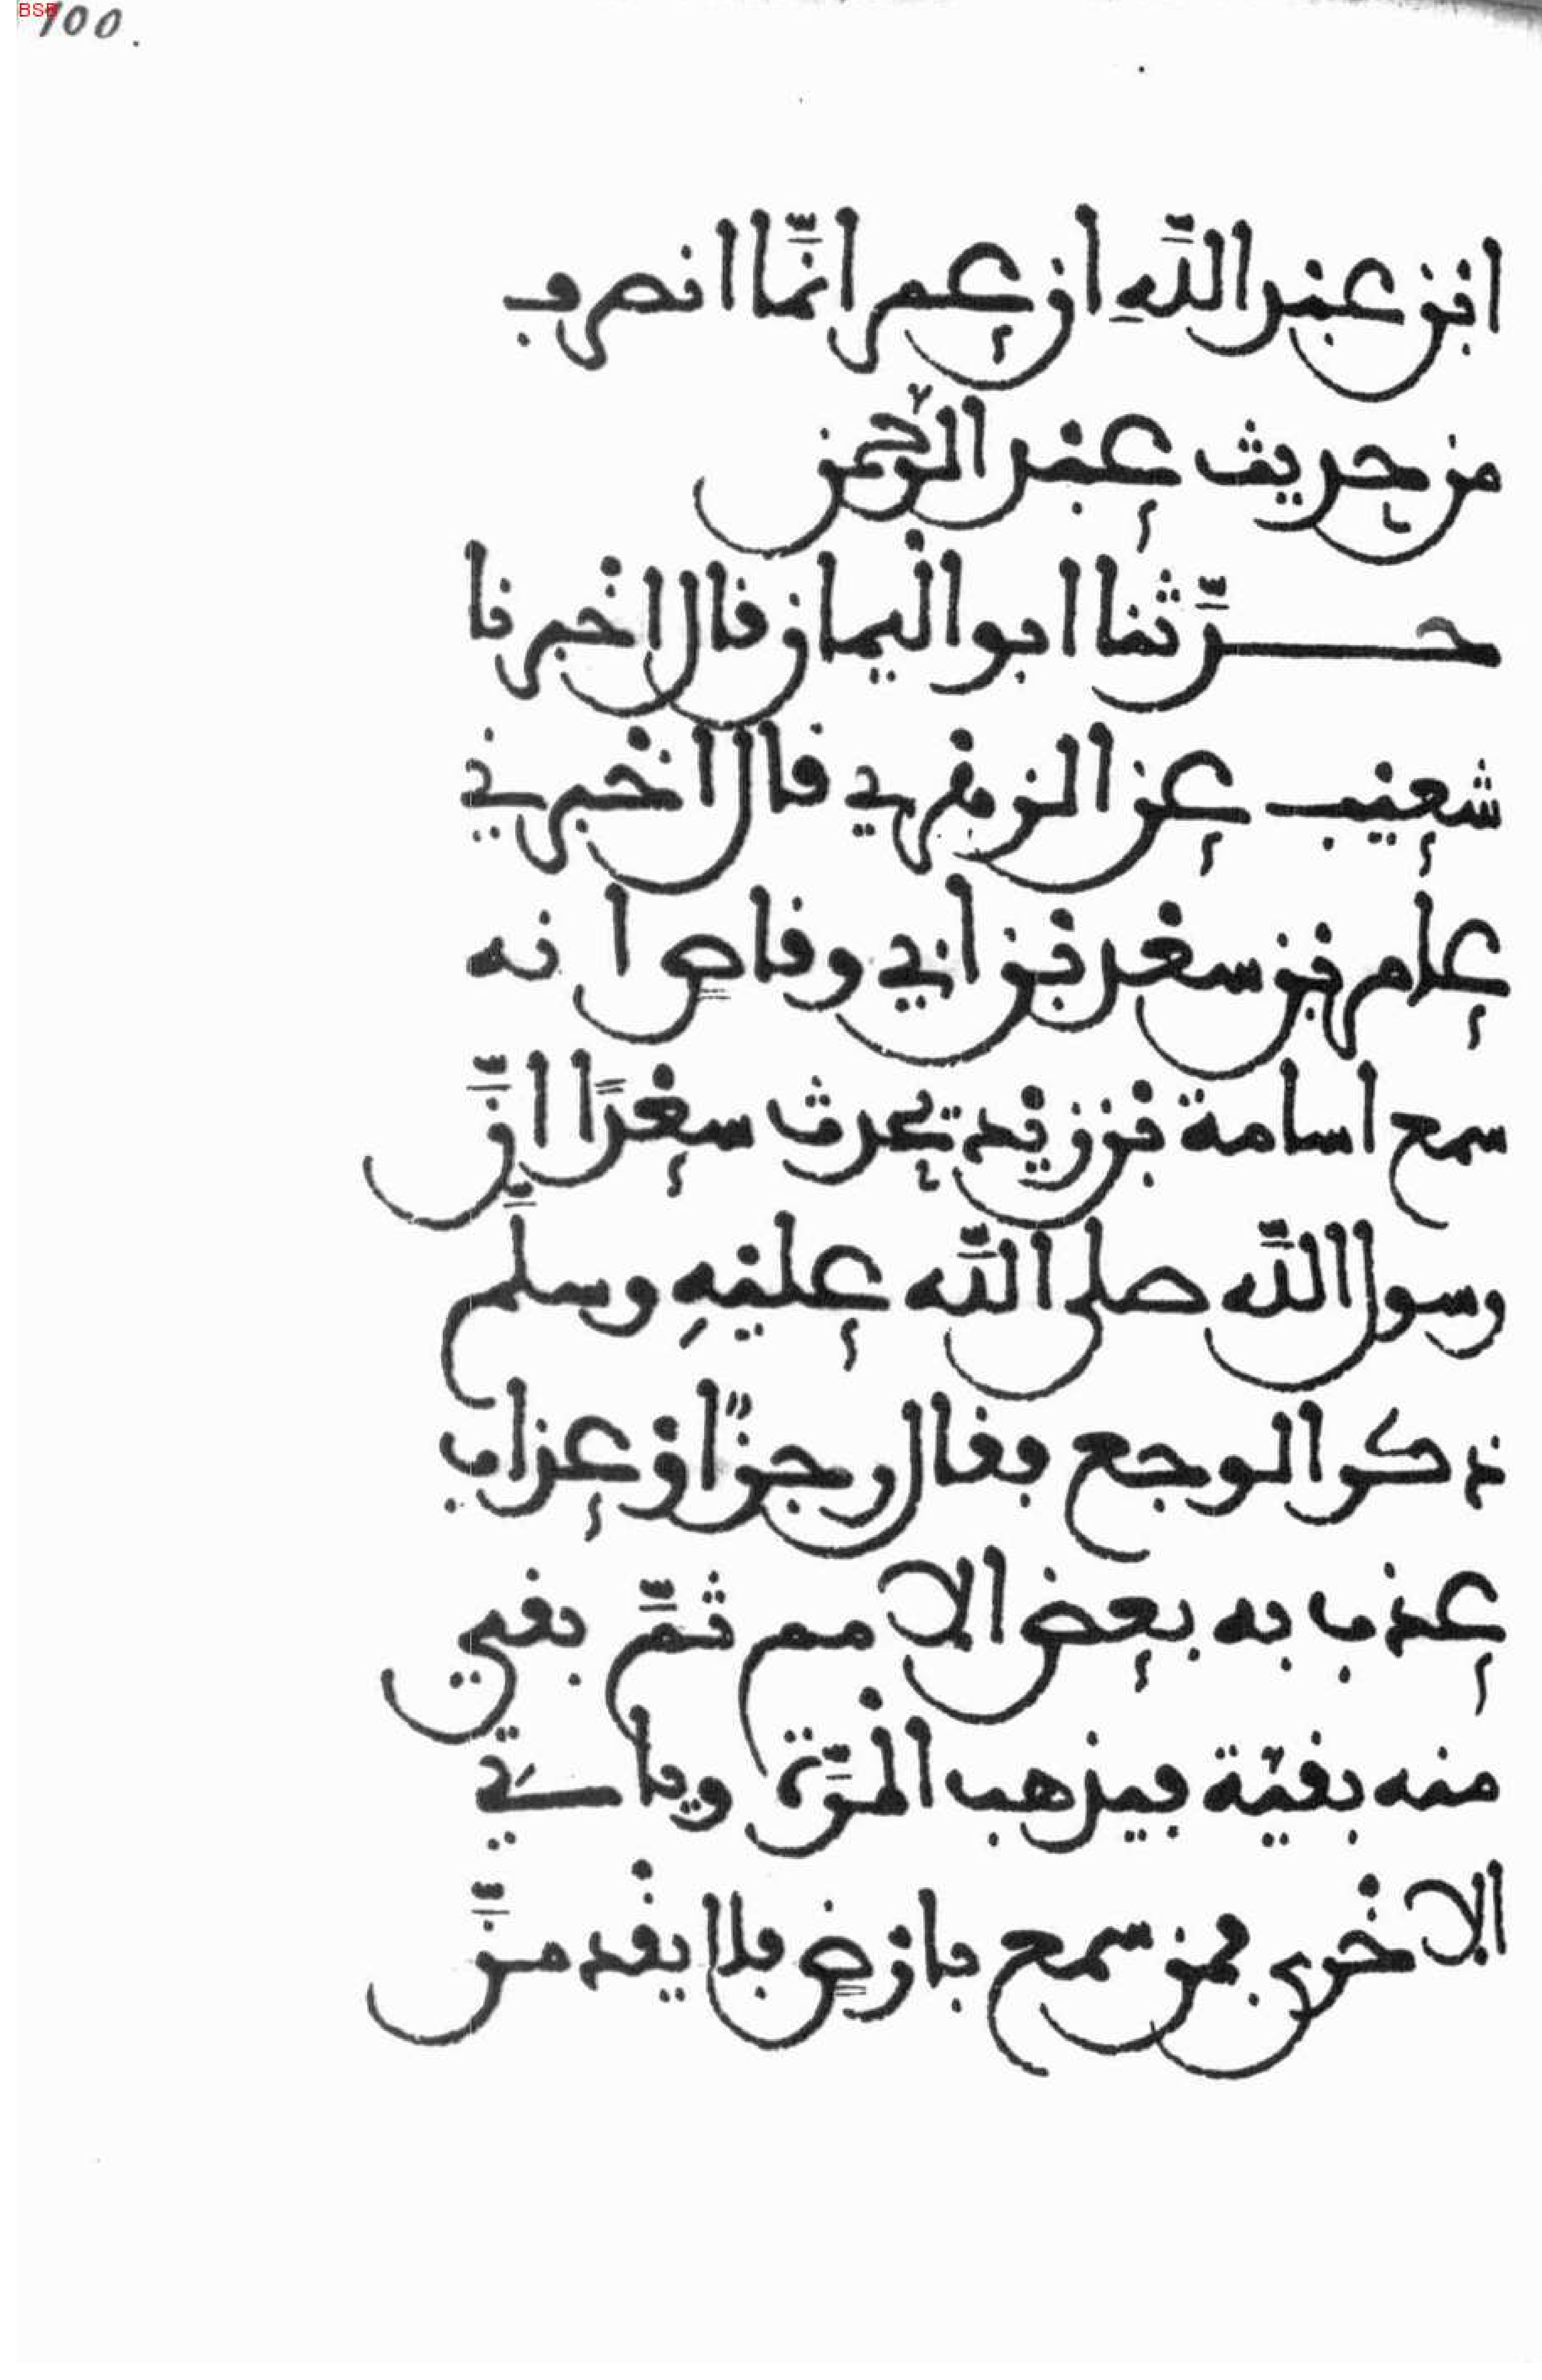 100.
ابن عبد اللهِ ان عمر انَّما انصرف
من حديث عبد الرحمن
حدَّثنا ابو اليمان قال اخبرنا
شعيب عن الزهري قال اخبرني
عامر بن سعد بن ابي وقاص انه
سمع اسامة بن زيد يحدث سعدًا انَّ
رسول اللَّه صلى اللَّه عليهِ وسلَّم
ذكر الوجع فقال رجزٌ او عذاب
عذب به بعض الامم ثمَّ بقي
منه بقيّة فيذهب المرَّة وياتي
الاخرى فمن سمع بارض فلا يقدمنَّ